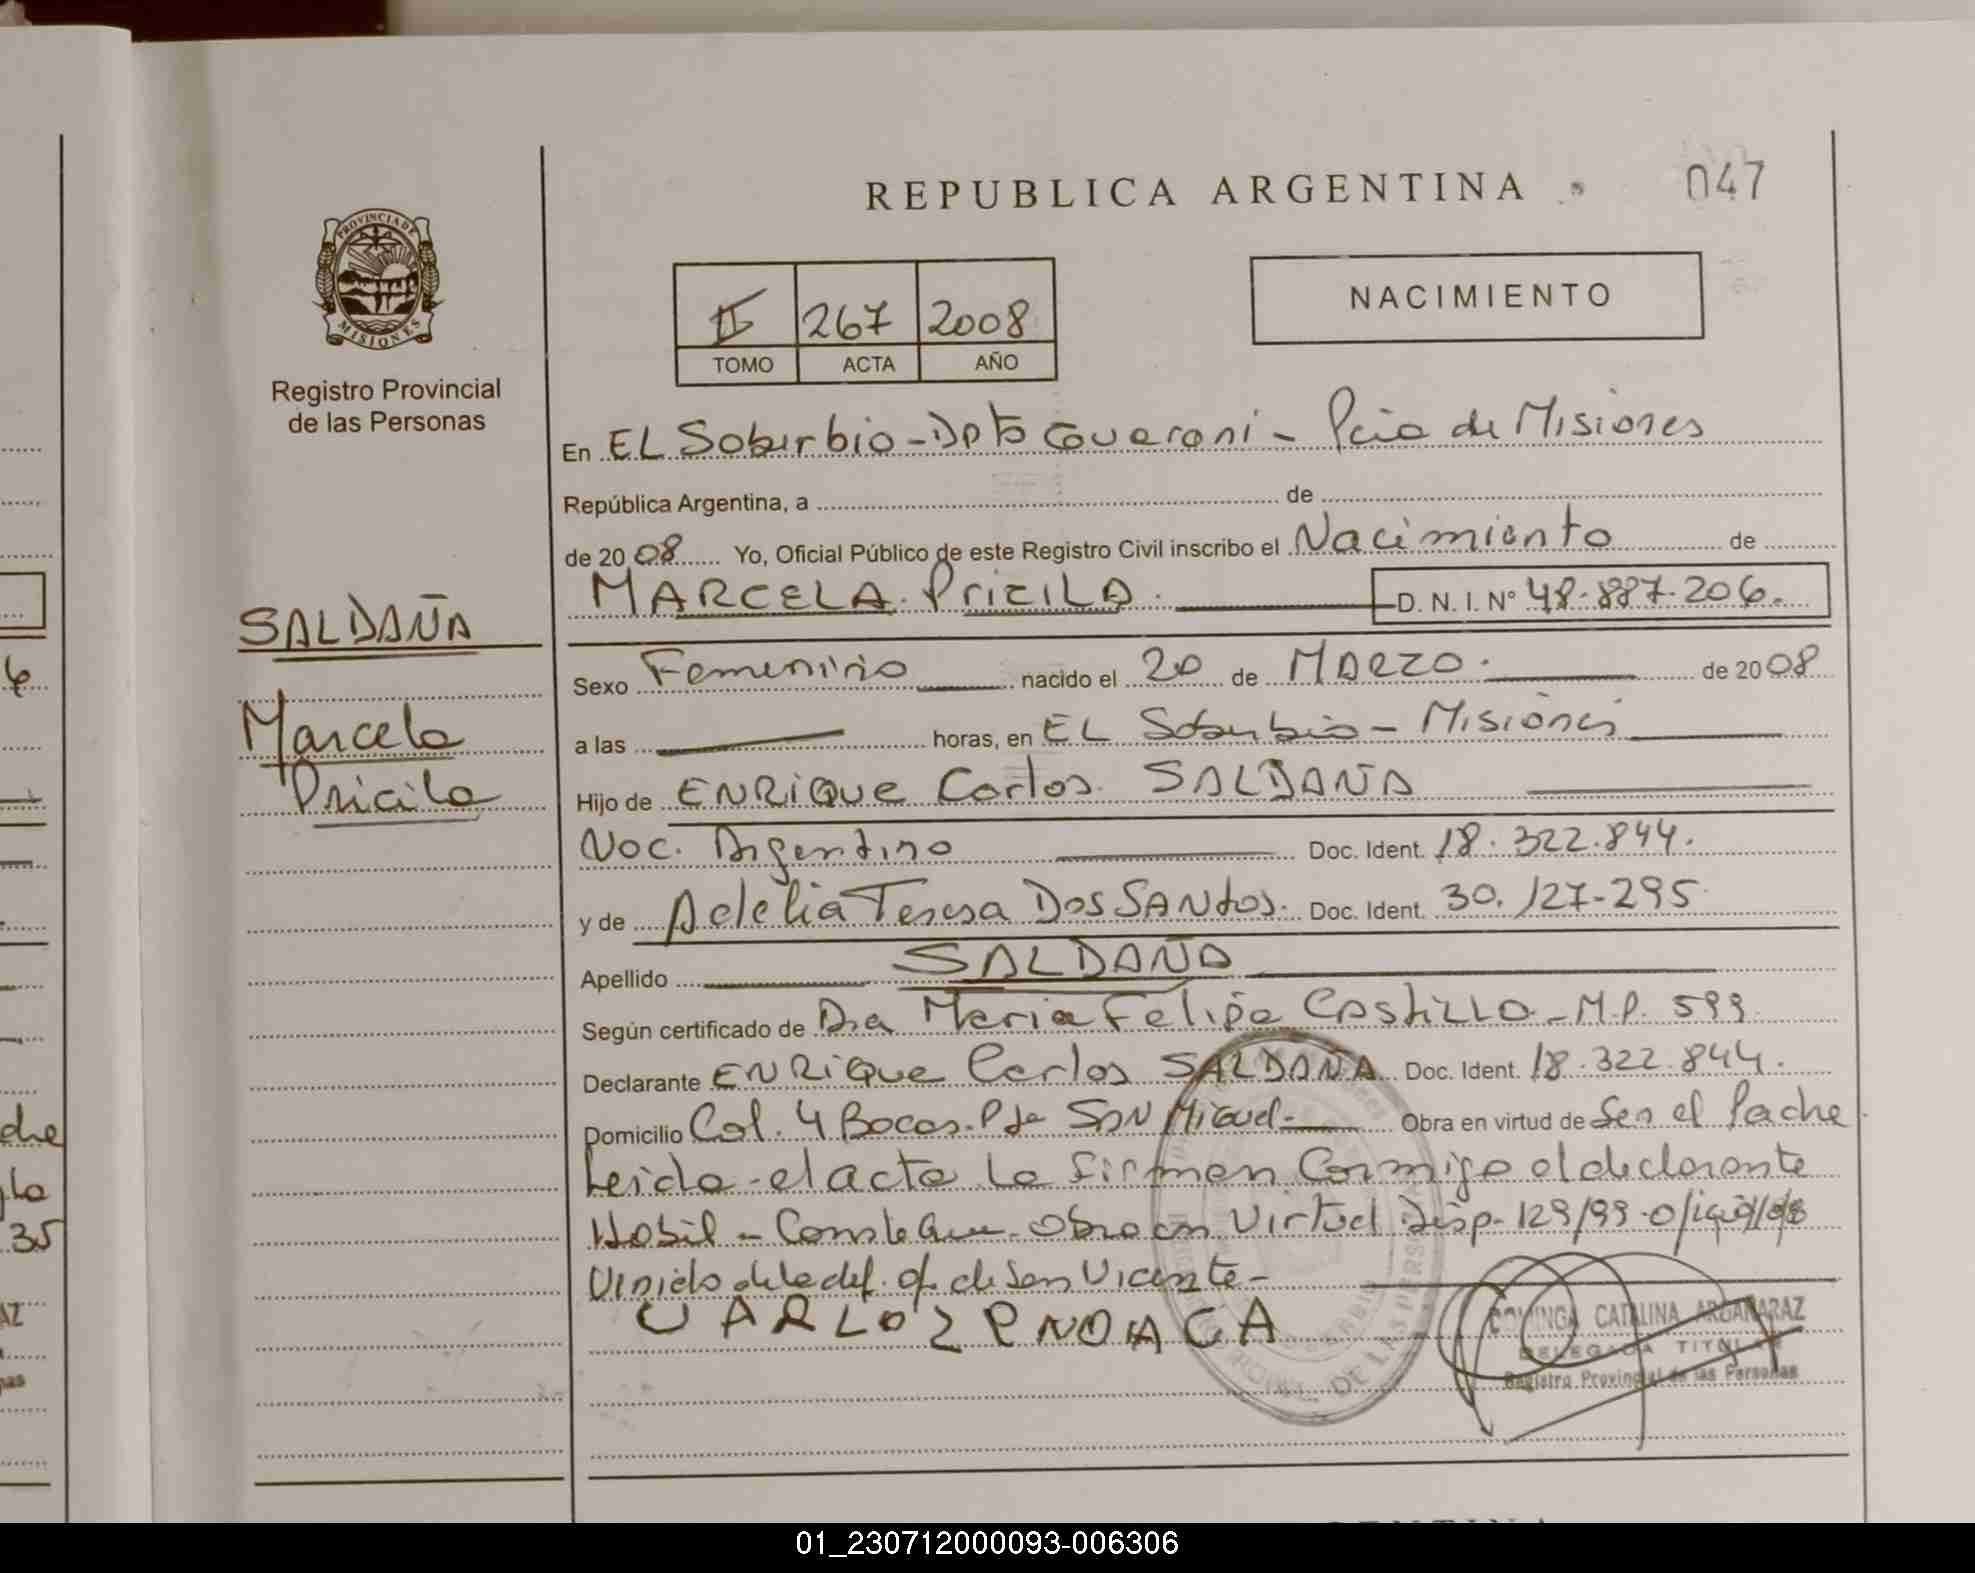 REPUBLICA ARGENTINA
047
PROVINCIA DE
MISIONES
Registro Provincial
de las Personas
II 267 2008
TOMO ACTA AÑO
NACIMIENTO
En EL Soberbio - Dpto Guarani - Pcia de Misiones
República Argentina, a de
de 2008 Yo, Oficial Público de este Registro Civil inscribo el Nacimiento de
MARCELA Pricila. D. N. I. Nº 48.887.206.
SALDAÑA
Marcela
Pricila
Sexo Femenino nacido el 20 de MARZO. de 2008
a las horas, en EL Soberbio - Misiones
Hijo de ENRiQue Carlos SALDAÑA
Nac. Argentino Doc. Ident. 18.322.844.
y de Adelia Teresa Dos SANtos. Doc. Ident. 30.127.295
Apellido SALDAÑA
Según certificado de Dra Maria Felipa CastiLLO - M.P. 599
Declarante ENRiQue Carlos SALDAÑA Doc. Ident. 18.322.844.
Domicilio Col. 4 Bocas. Pje SAN Miguel - Obra en virtud de Ser el Padre
Leida el acta La Firman Conmigo el declarante
Habil - Conste Que Obra en Virtud Disp. 129/99
de San Vicente -
DOMINGA CATALINA ARGAÑARAZ
DELEGADA TITULAR
Registro Provincial de las Personas
DE LAS PERSONAS
dre
35
01_230712000093-006306